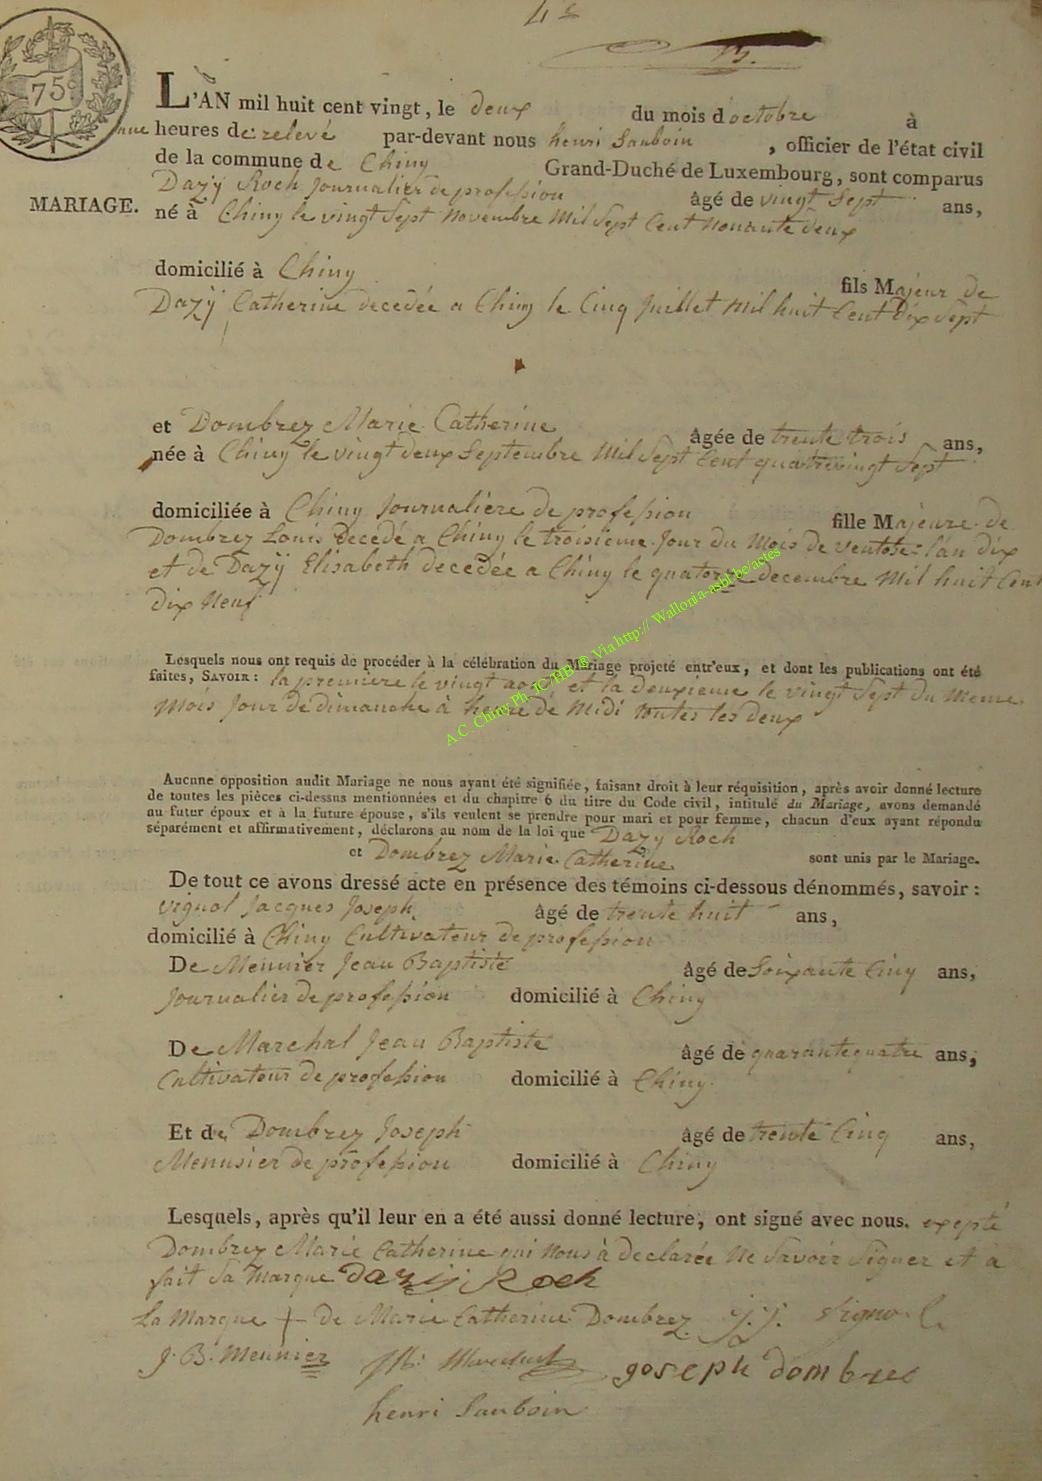 4e
13.
75c
L'AN mil huit cent vingt, le deux du mois d octobre à
une heures de relevé par-devant nous henri Sauboin, officier de l'état civil
de la commune de Chiny Grand-Duché de Luxembourg, sont comparus
Dazÿ Roch Journalier de profession âgé de vingt Sept ans,
MARIAGE.
né à Chiny le vingt Sept Novembre Mil Sept Cent Nonante deux
domicilié à Chiny fils Majeur de
Dazÿ Catherine decedée a Chiny le Cinq Juillet Mil huit Cent Dix Sept
et Dombrez Marie Catherine âgée de trente trois ans,
née à Chiny le vingt deux Septembre Mil Sept Cent quatrevingt Sept
domiciliée à Chiny Journalière de profession fille Majeure de
Dombrez Louis decedé a Chiny le troisieme Jour du Mois de ventose l'an dix
et de Dazÿ Elisabeth decedée a Chiny le quatorze decembre Mil huit Cent
dix Neuf
Lesquels nous ont requis de procéder à la célébration du Mariage projeté entr'eux, et dont les publications ont été
faites, SAVOIR: la premiere le vingt aout et la Deuxieme le vingt Sept du Meme
Mois Jour de dimanche à heure de Midi toutes les deux
A.C. Chiny Ph. JC/HB ® Via http:// Wallonia-asbl.be/actes
Aucune opposition audit Mariage ne nous ayant été signifiée, faisant droit à leur réquisition, après avoir donné lecture
de toutes les pièces ci-dessus mentionnées et du chapitre 6 du titre du Code civil, intitulé du Mariage, avons demandé
au futur époux et à la future épouse, s'ils veulent se prendre pour mari et pour femme, chacun d'eux ayant répondu
séparément et affirmativement, déclarons au nom de la loi que Dazy Roch
et Dombrez Marie Catherine sont unis par le Mariage.
De tout ce avons dressé acte en présence des témoins ci-dessous dénommés, savoir:
Vignol Jacques Joseph âgé de trente huit ans,
domicilié à Chiny Cultivateur de profession
De Meunier Jean Baptiste âgé de Soixante Cinq ans,
Journalier de profession domicilié à Chiny
De Marchal Jean Baptiste âgé de quarante quatre ans,
Cultivateur de profession domicilié à Chiny
Et de Dombrez Joseph âgé de trente Cinq ans,
Menusier de profession domicilié à Chiny
Lesquels, après qu'il leur en a été aussi donné lecture, ont signé avec nous. exepté
Dombrez Marie Catherine qui Nous à declarée Ne Savoir Signer et à
fait Sa Marque Dazÿ Roch
La Marque + de Marie Catherine Dombrez J. J. Vignol
J. B. Meunier Marchal joseph dombres
henri Sauboin